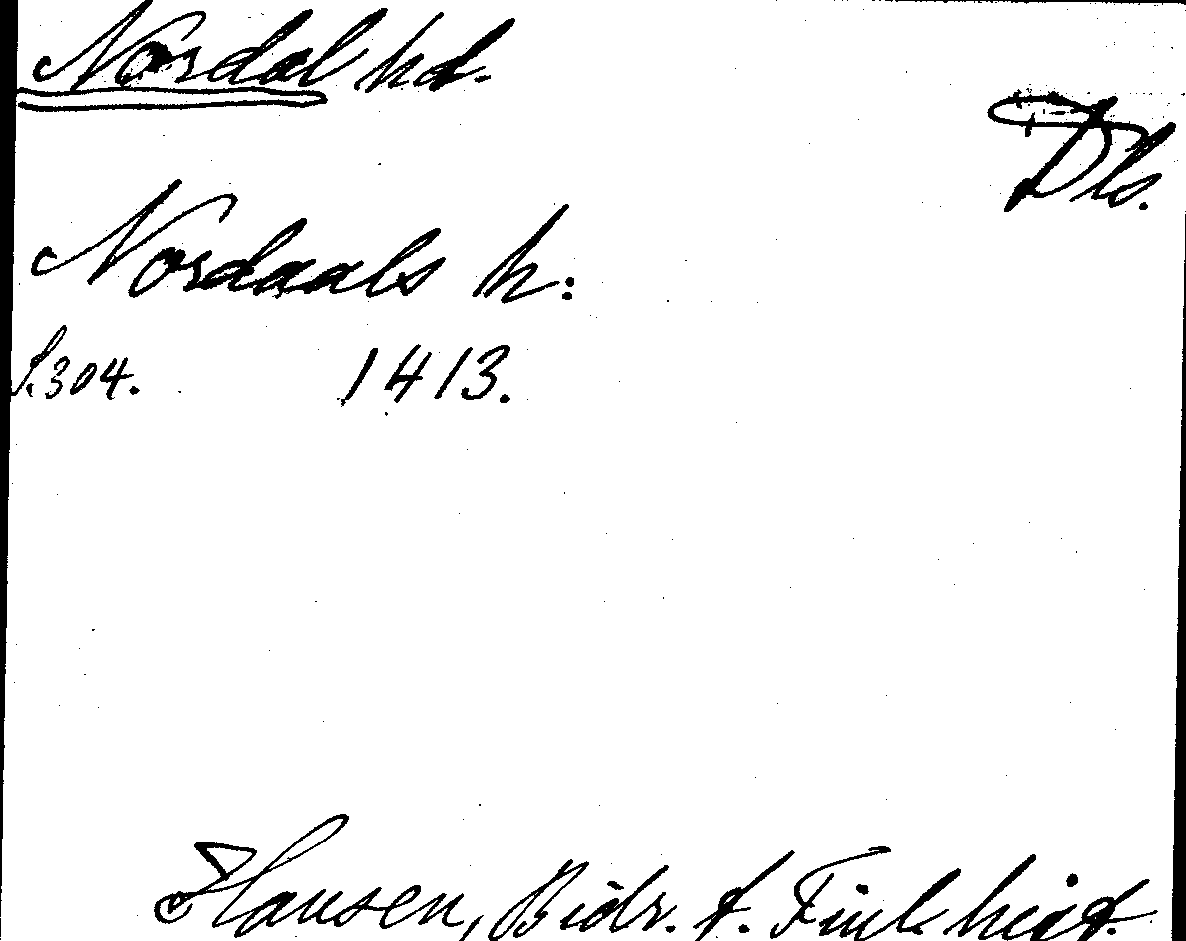 Nordal hd.
Dls.
Nordaals h:
S.304. 1413.
Hausen, Bidr. t. Finl. hist.